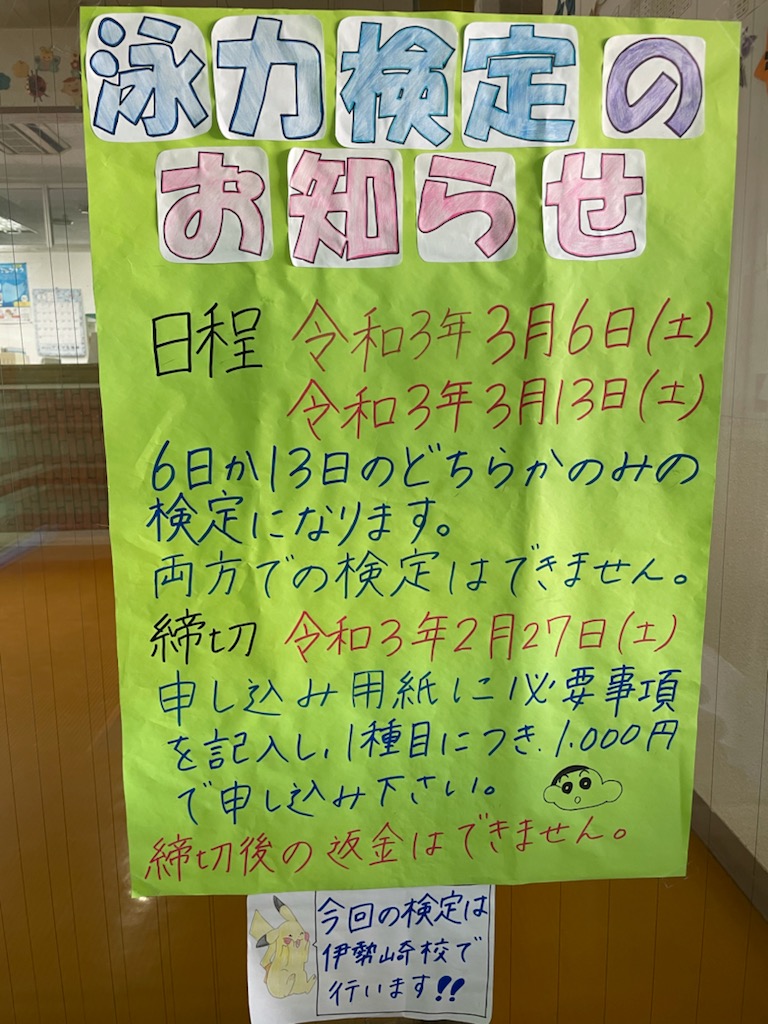 泳力検定の
お知らせ
日程 令和3年3月6日(土)
令和3年3月13日(土)
6日か13日のどちらかのみの
検定になります。
両方での検定はできません。
締切 令和3年2月27日(土)
申し込み用紙に必要事項
を記入し、1種目につき、1.000円
で申し込み下さい。
締切後の返金はできません。
今回の検定は
伊勢崎校で
行います!!